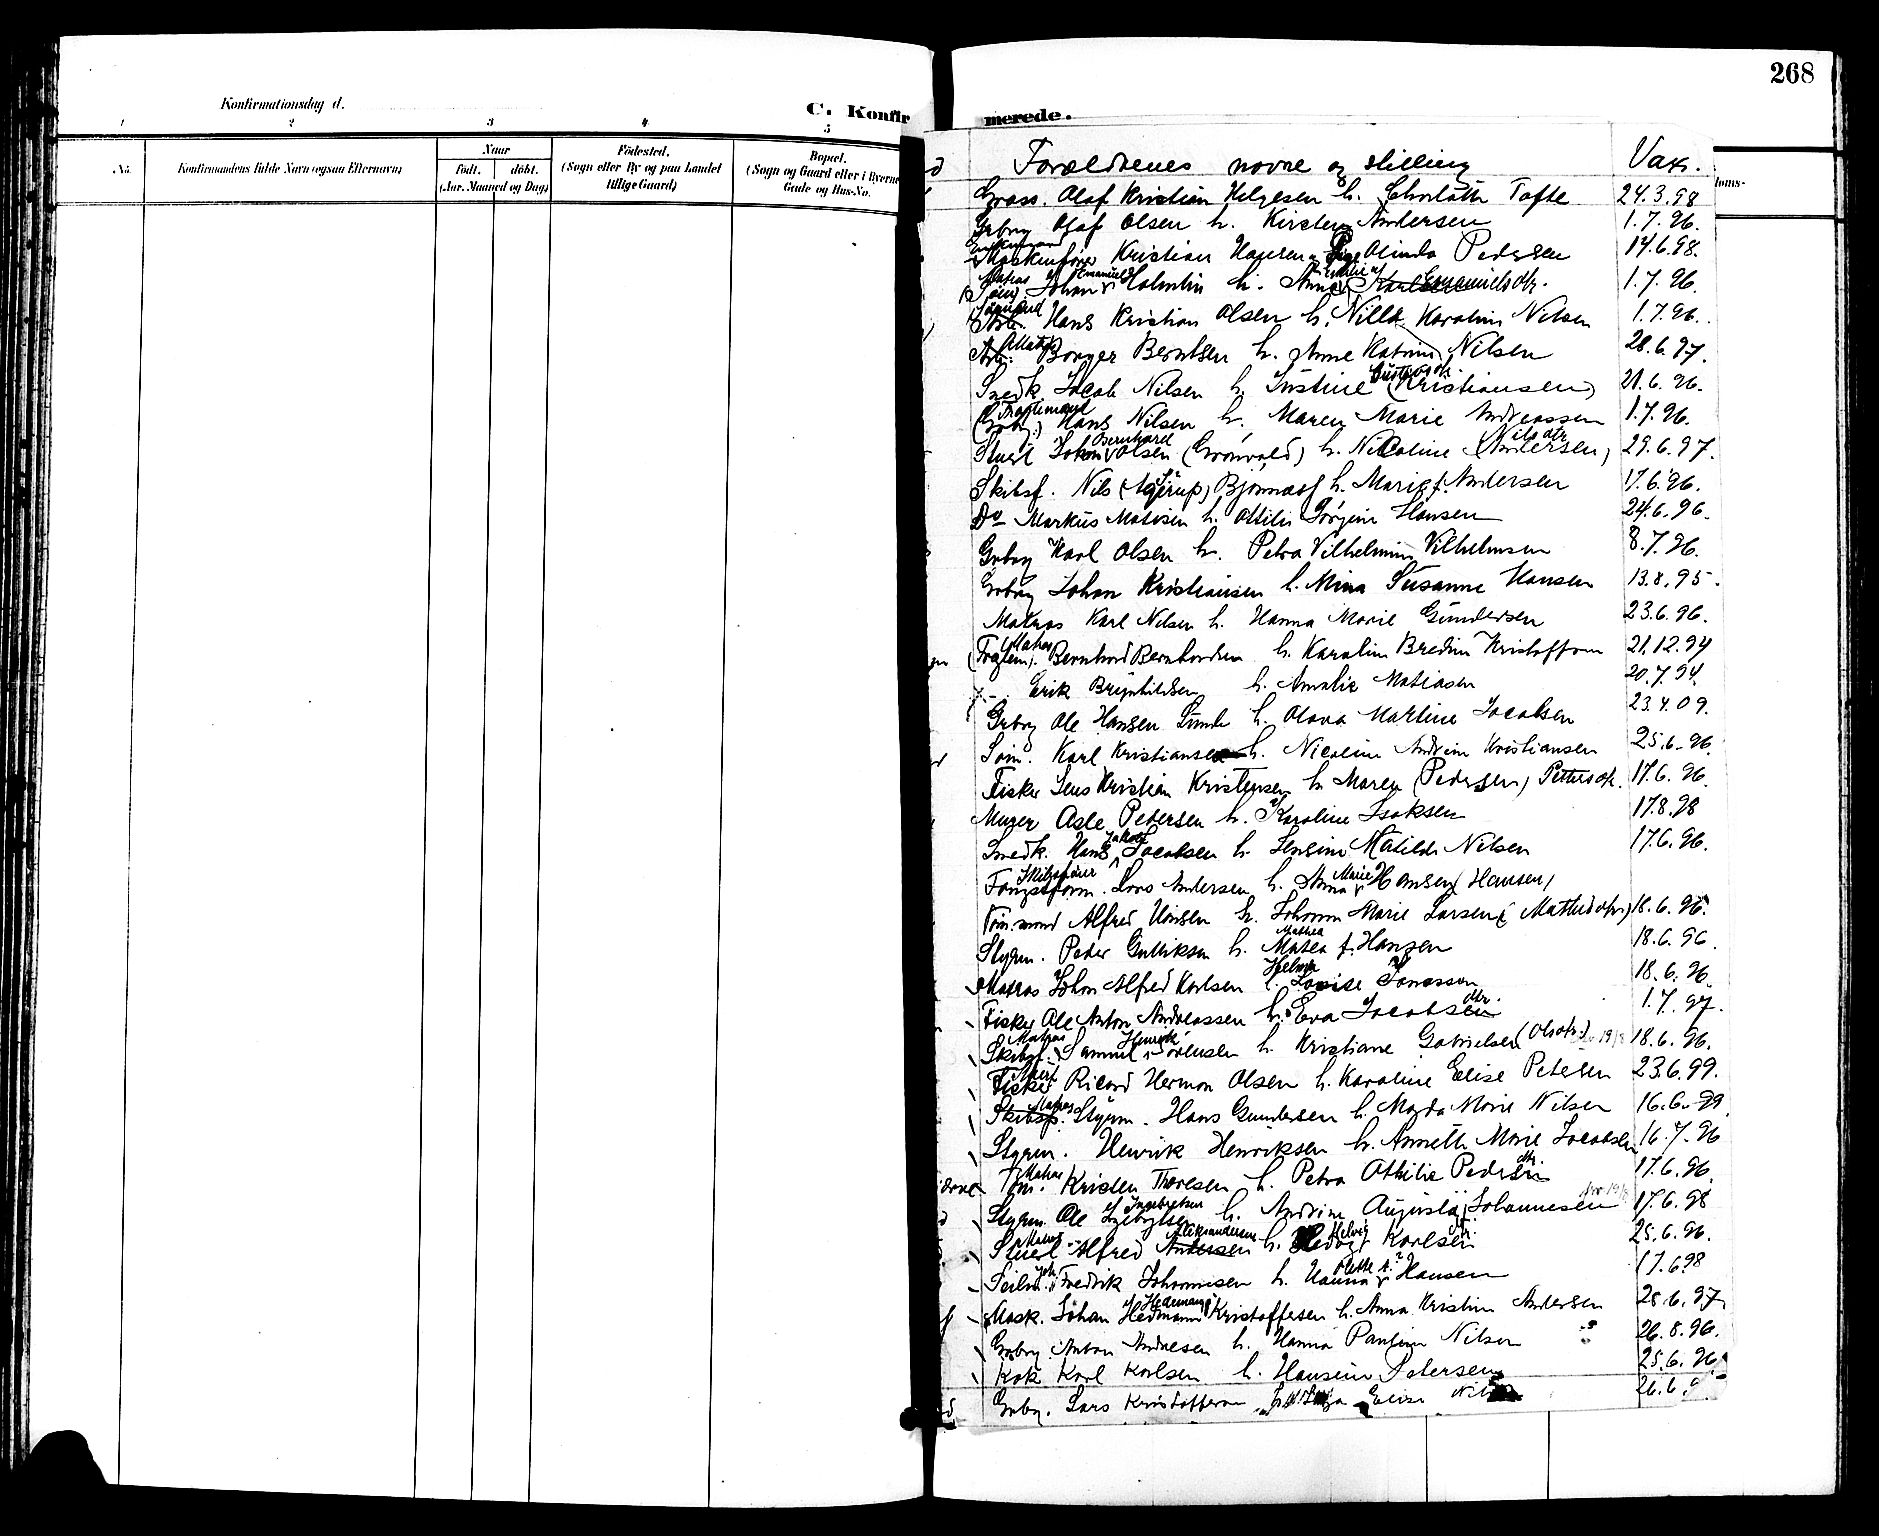 268
Konfirmationsdag d.
C. Konfirmerede.
1 2 3 4 5
No. Konfirmandens fulde Navn (ogsaa Efternavn)
Naar
født. døbt.
(Aar, Maaned og Dag)
Fødested.
(Sogn eller By og paa Landet tillige Gaard)
Bopæl.
(Sogn og Gaard eller i Byerne Gade og Hus-No.
Forældrenes navne og stilling Vax.
Olaf Kristian Helgesen h. Charlotte Tofte 24.3.98
Grbrg Olaf Olsen h. Kirsten Andersen 1.7.96.
Maskinfører Kristian Hansen Olinda Pedersen 14.6.98.
Matros Emanuel
Johan Holmlin h. Anna Emanuelsdtr. 1.7.96.
Hans Kristian Olsen h. Nilla Karoline Nilsen 1.7.96.
Matr.
Arb. Borger Berntsen h. Anne Katrine Nilsen 28.6.97.
Snedk. Jacob Nilsen h. Justine (Kristiansen) 21.6.96.
Hans Nilsen h. Maren Marie Andreassen 1.7.96.
Bernhard Nilsdtr
Stuert Johan Olsen (Grønvold) h. Nicoline (Andersen) 29.6.97.
Skibsf. Nils (Agerup) Bjønnæs h. Marie f. Andersen 17.6.96.
Do Markus Matisen h. Otilie Jørgine Hansen 24.6.96.
Grbrg Karl Olsen h. Petra Vilhelmine Vilhelmsen 8.7.96.
Grbrg Johan Kristiansen h. Mina Susanne Hansen 13.8.95.
Matros Karl Nilsen h. Hanna Marie Gundersen 23.6.96.
Matros
Bernhard Bernhardsen h. Karoline Bredine Kristoffersen 21.12.94
Erik Brynhildsen h. Amalie Matiasen 20.7.94.
Grbrg Ole Hansen h. Olava Martine Jacobsen 23.4.09.
Søm. Karl Kristiansen h. Nicoline Andrine Kristiansen 25.6.96.
Fisker Jens Kristian Kristensen h. Maren (Pedersen) Pettersdtr. 17.6.96.
Murer Asle Pedersen h. Karoline Isaksen 17.8.98
Jakob
Snedk. Hans Jacobsen h. Jensine Matilde Nilsen 17.6.96.
Skibsfører Marie
Lars Andersen h. Anna Hansen (Hansen)
Tømmermand Alfred Hansen h. Johanne Marie Larsen 18.6.96.
Mathea
Styrm. Peder Gulliksen h. Matea f. Hansen 18.6.96.
Helmine
Matros Johan Alfred Karlsen h. Lovise Jonassen 18.6.96.
dtr.
Fisker Ole Anton Andreassen h. Eva Jacobsen 1.7.97.
Matros Henrik
Skibsf. Samuel Sørensen h. Kristiane Gabrielsen (Olsdtr.) 18.6.96.
Fisker Ricard Herman Olsen h. Karoline Elise Petersen 23.6.99.
Matros
Skibsf. Styrm. Hans Gundersen h. Magda Marie Nilsen 16.6.99.
Styrm. Henrik Henriksen h. Annette Marie Jacobsen 16.7.96
Matros dtr.
Tøm. Kristen Thoresen h. Petra Othilie Pedersen 17.6.96.
Ingebretsen
Styrm. Ole h. Andrine Augusta Johannesen 17.6.98
Matros Aleksandersen Helvig dtr.
Stuert Alfred Andersen h. Karlsen 25.6.96.
Joh. Olette
Seilm. Fredrik Johannesen h. Hanna Hansen 17.6.98
Mask. Johan Hermann Kristoffersen h. Anna Kristine Andersen 28.6.97.
Grbrg. Anton Andresen h. Hanna Pauline Nilsen 26.8.96.
Kok Karl Karlsen h. Hansine Petersen 25.6.96
Grbrg. Lars Kristoffersen Elise 26.6.